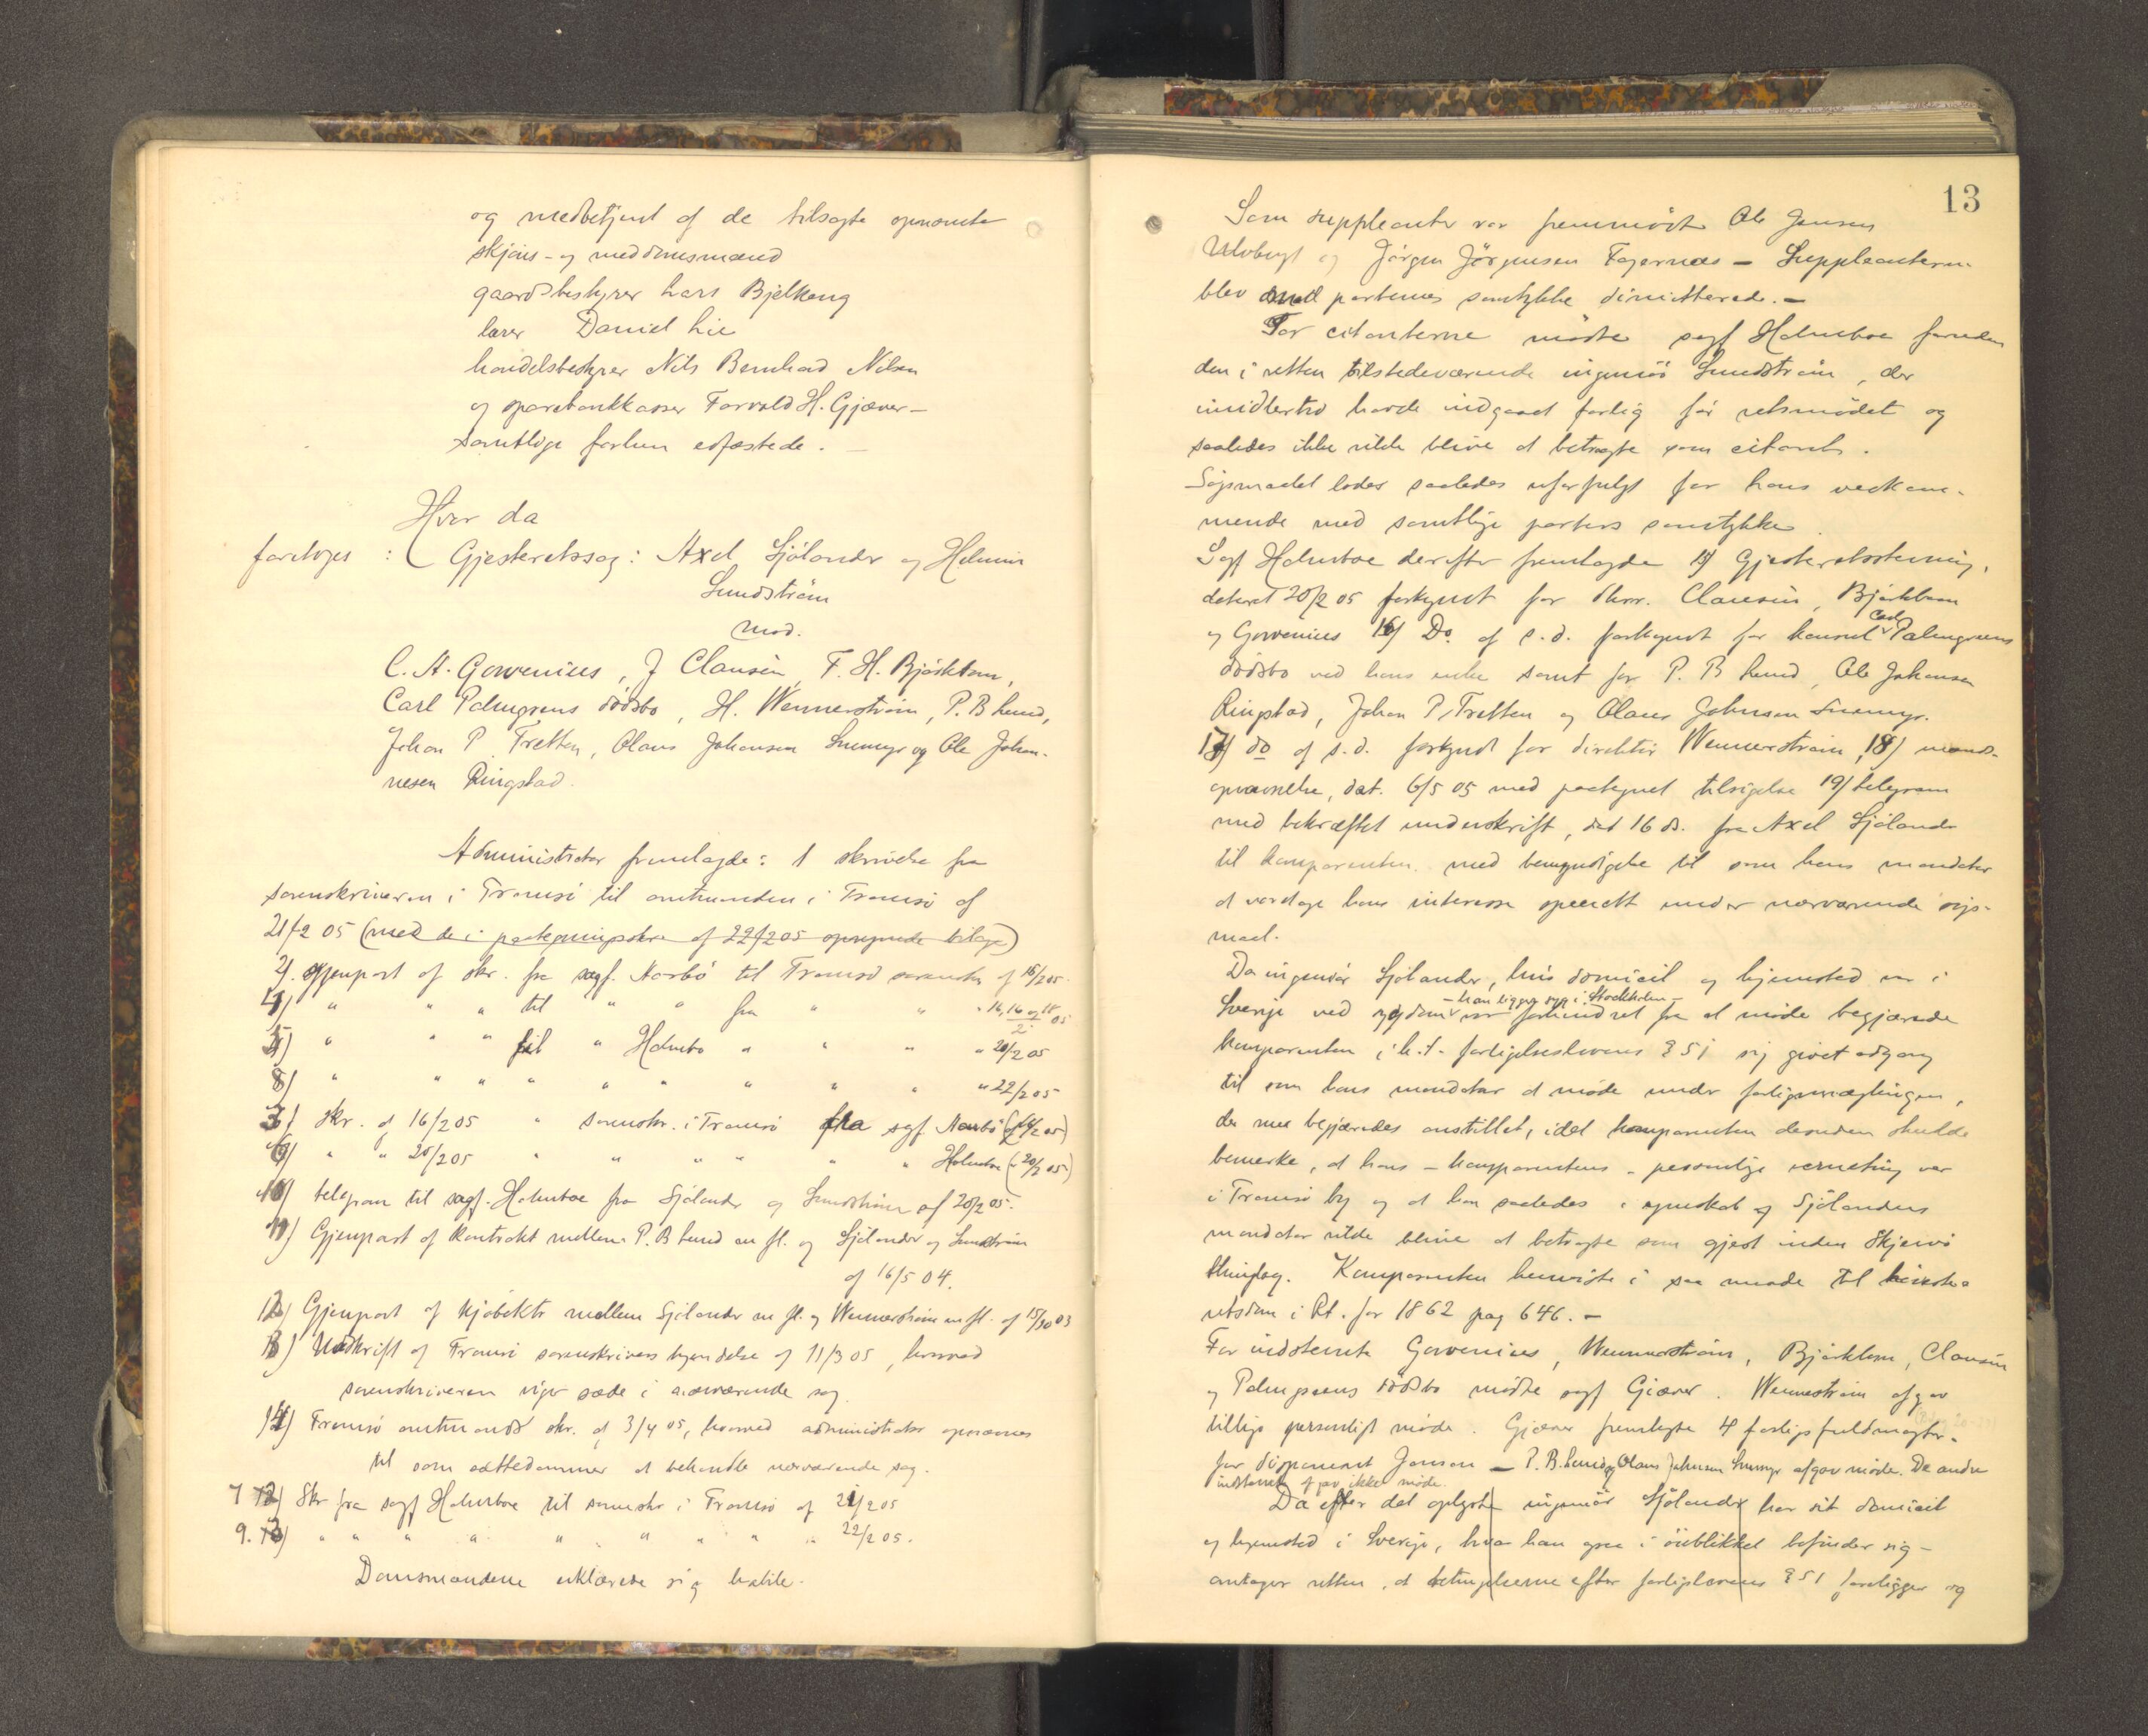 og medbetjent af de tilsagte opnævnte
skjøns- og meddomsmænd
gaardsbestyrer Lars Bjelkeng
lærer Daniel Lie
handelsbestyrer Nils Bernhard Nilsen
og sparebankkasser Torvald H. Gjæver –
samtlige forhen edfæstede. –
Hvor da
foretoges : Gjesteretssag: Axel Sjölander og Helmin
Sundström
mod.
C. A. Gowenius, J Clausén, F. H. Björkbom,
Carl Palmgrens dödsbo, H. Wennerström, P. B Lund,
Johan P. Tretten, Olaus Johansen Snemyr og Ole Johan-
nesen Ringstad.
Administrator fremlagde: 1 skrivelse fra
sorenskriveren i Tromsö til amtmanden i Tromsö af
21/2 05 (med de i paategningsskr. af 22/2 05 opregnede bilage)
2). Gjenpart af skr. fra sagf. Norbö til Tromsö sorenskr. af 16/2 05.
4) " " " til " " fra " " " 14, 16 og 18/2 05
5) " " " til " Holmbo " " " " 20/2 05
8) " " " " " " " " " " 22/2 05
3) skr. af 16/2 05 " sorenskr. i Tromsö fra sagf Norbö (16/2 05)
6) " " 20/2 05 " " " " " " Holmboe (" 20/2 05)
10) telegram til sagf. Holmboe fra Sjölander og Sundström af 20/2 05.
11) Gjenpart af kontrakt mellem P. B Lund m fl. og Sjölander og Sundström
af 16/5 04.
12) Gjenpart af kjöbektr mellem Sjölander m fl. og Wennerström m fl. af 15/10 03
13) Udskrift af Tromsö sorenskrivers kjendelse af 11/3 05, hvorved
sorenskriveren viger sæde i nærværende sag
14) Tromsö amtmands skr. af 3/4 05, hvorved administrator opnævnes
til som sættedommer at behandle nærværende sag.
7 12) Skr fra sagf Holmboe til sorenskr i Tromsö af 21/2 05
9. 13) " " " " " " " " " 22/2 05.
Domsmændene erklærede sig habile.
13
Som suppleanter var fremmödt Ole Jensen
Ulvbugt og Jörgen Jörgensen Fagernæs – Suppleanterne
blev med parternes samtykke dimitterede. –
For citanterne mödte sagf Holmboe foruden
den i retten tilstedeværende ingeniör Sundström, der
imidlertid havde indgaaet forlig för retsmödet og
saaledes ikke vilde blive at betragte som citant.
Sögsmaalet lodes saaledes uforfulgt for hans vedkom-
mende med samtlige parters samtykke.
Sagf Holmboe derefter fremlagde 15) Gjesteretsstevning,
dateret 20/2 05 forkyndt for dhrr. Clausén, Björkbom
og Gowenius 16) Do. af s. d. forkyndt for konsul Carl Palmgreens
dödsbo ved hans enke samt for P. B Lund, Ole Johansen
Ringstad, Johan P. Tretten og Olaus Johnsen Snemyr.
17) do af s. d. forkyndt for direktör Wennerström, 18) mands-
opnævnelse, dat. 6/5 05 med paategnet tilsigelse 19) telegram
med bekræftet underskrift, dat 16 ds. fra Axel Sjölander
til komparenten med bemyndigelse til som hans mandatar
at varetage hans interesse specielt under nærværende sögs-
maal.
Da ingeniör Sjölander, hvis domicil og hjemsted var i
– han ligger syg i Stockholm –
Sverige ved sygdom var forhindret fra at möde begjærede
komparenten i h. t. forligelseslovens § 51 sig givet adgang
til som hans mandatar at möde under forligsmæglingen,
der nu begjæredes anstillet, idet komparenten desuden skulde
bemerke, at hans – komparentens – personlige verneting var
i Tromsö by og at han saaledes i egenskab af Sjölanders
mandatar vilde blive at betragte som gjest inden Skjervö
thinglag. Komparenten henviste i saa maade til höieste
retsdom i Rt. for 1862 pag 646. –
For indstevnte Gowenius, Wennerström, Björkbom, Clausén
og Palmgreens dödsbo mödte sagf Gjæver. Wennerström afgav
tillige personligt möde. Gjæver fremlagte 4 forligsfuldmagter.
for disponent Jonson – P. B. Lund og Olaus Johnsen Snemyr afgav möde. De andre
indstevnte afgav ikke möde.
Da efter det oplyste ingeniör Sjölander har sit domicil
og hjemsted i Sverige, hvor han ogsaa i öieblikket befinder sig –
antager retten, at betingelserne efter forligslovens § 51 foreligger og